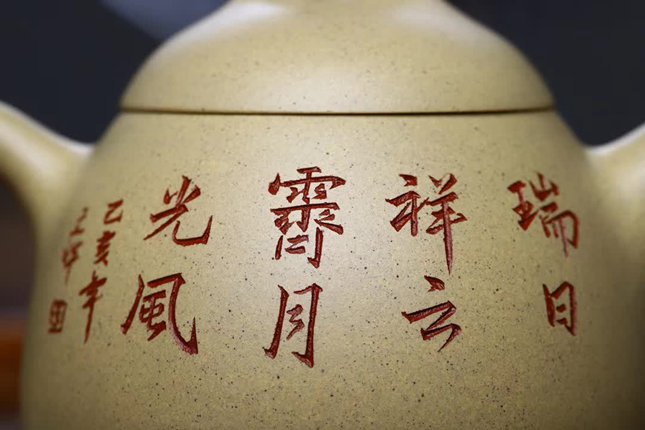 瑞日
祥云
霽月
光风
乙亥年